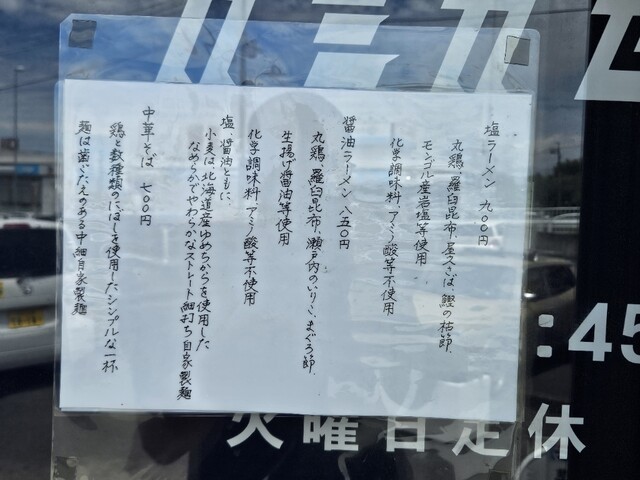 塩ラーメン 九00円
丸鶏、羅臼昆布、屋久さば、鰹の枯節、
モンゴル産岩塩等使用
化学調味料、アミノ酸等不使用
醤油ラーメン 八五0円
丸鶏、羅臼昆布、瀬戸内のいりこ、まぐろ節、
生揚げ醤油等使用
化学調味料、アミノ酸等不使用
塩、醤油ともに、
小麦は、北海道産ゆめちからを使用した
なめらかでやわらかなストレート細打ち自家製麺
中華そば 七00円
鶏と数種類のにぼしを使用したシンプルな一杯
麺は歯ごたえのある中細自家製麺
:45
火曜日定休